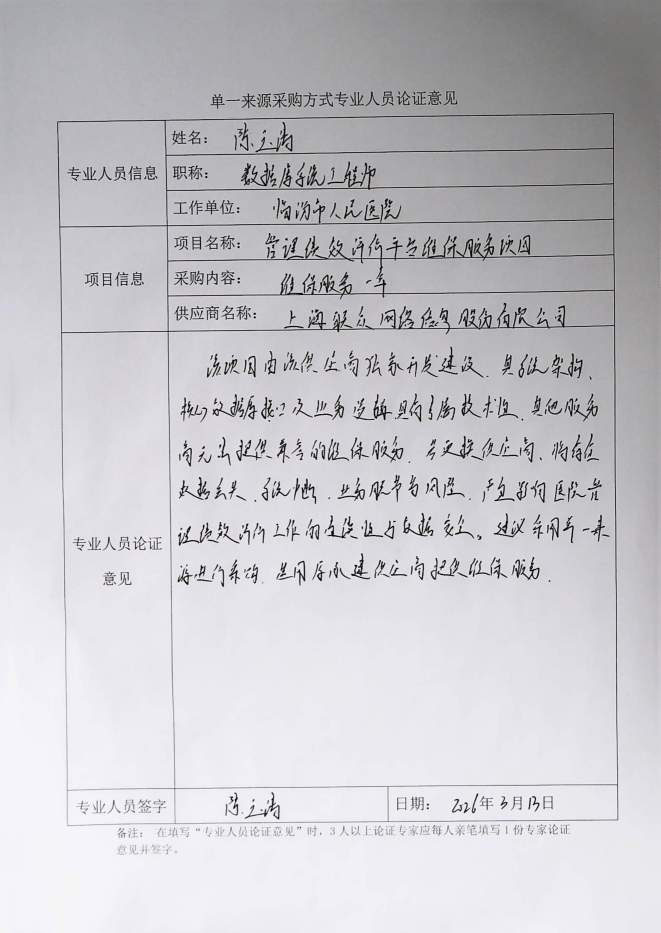 单一来源采购方式专业人员论证意见
专业人员信息
姓名： 陈立涛
职称： 数据库系统工程师
工作单位： 临汾市人民医院
项目信息
项目名称： 管理绩效评价平台维保服务项目
采购内容： 维保服务一年
供应商名称： 上海联众网络信息股份有限公司
专业人员论证
意见
该项目由该供应商独家开发建设，其系统架构、
核心数据库接口及业务逻辑具有专属技术性，其他服务
商无法提供兼容的维保服务。若更换供应商，将存在
数据丢失、系统中断、业务脱节等风险，严重影响医院管
理绩效评价工作的连续性与数据安全。建议采用单一来
源进行采购，选用原承建供应商提供维保服务。
专业人员签字
陈立涛
日期： 2026年3月13日
备注： 在填写“专业人员论证意见”时，3人以上论证专家应每人亲笔填写1份专家论证
意见并签字。